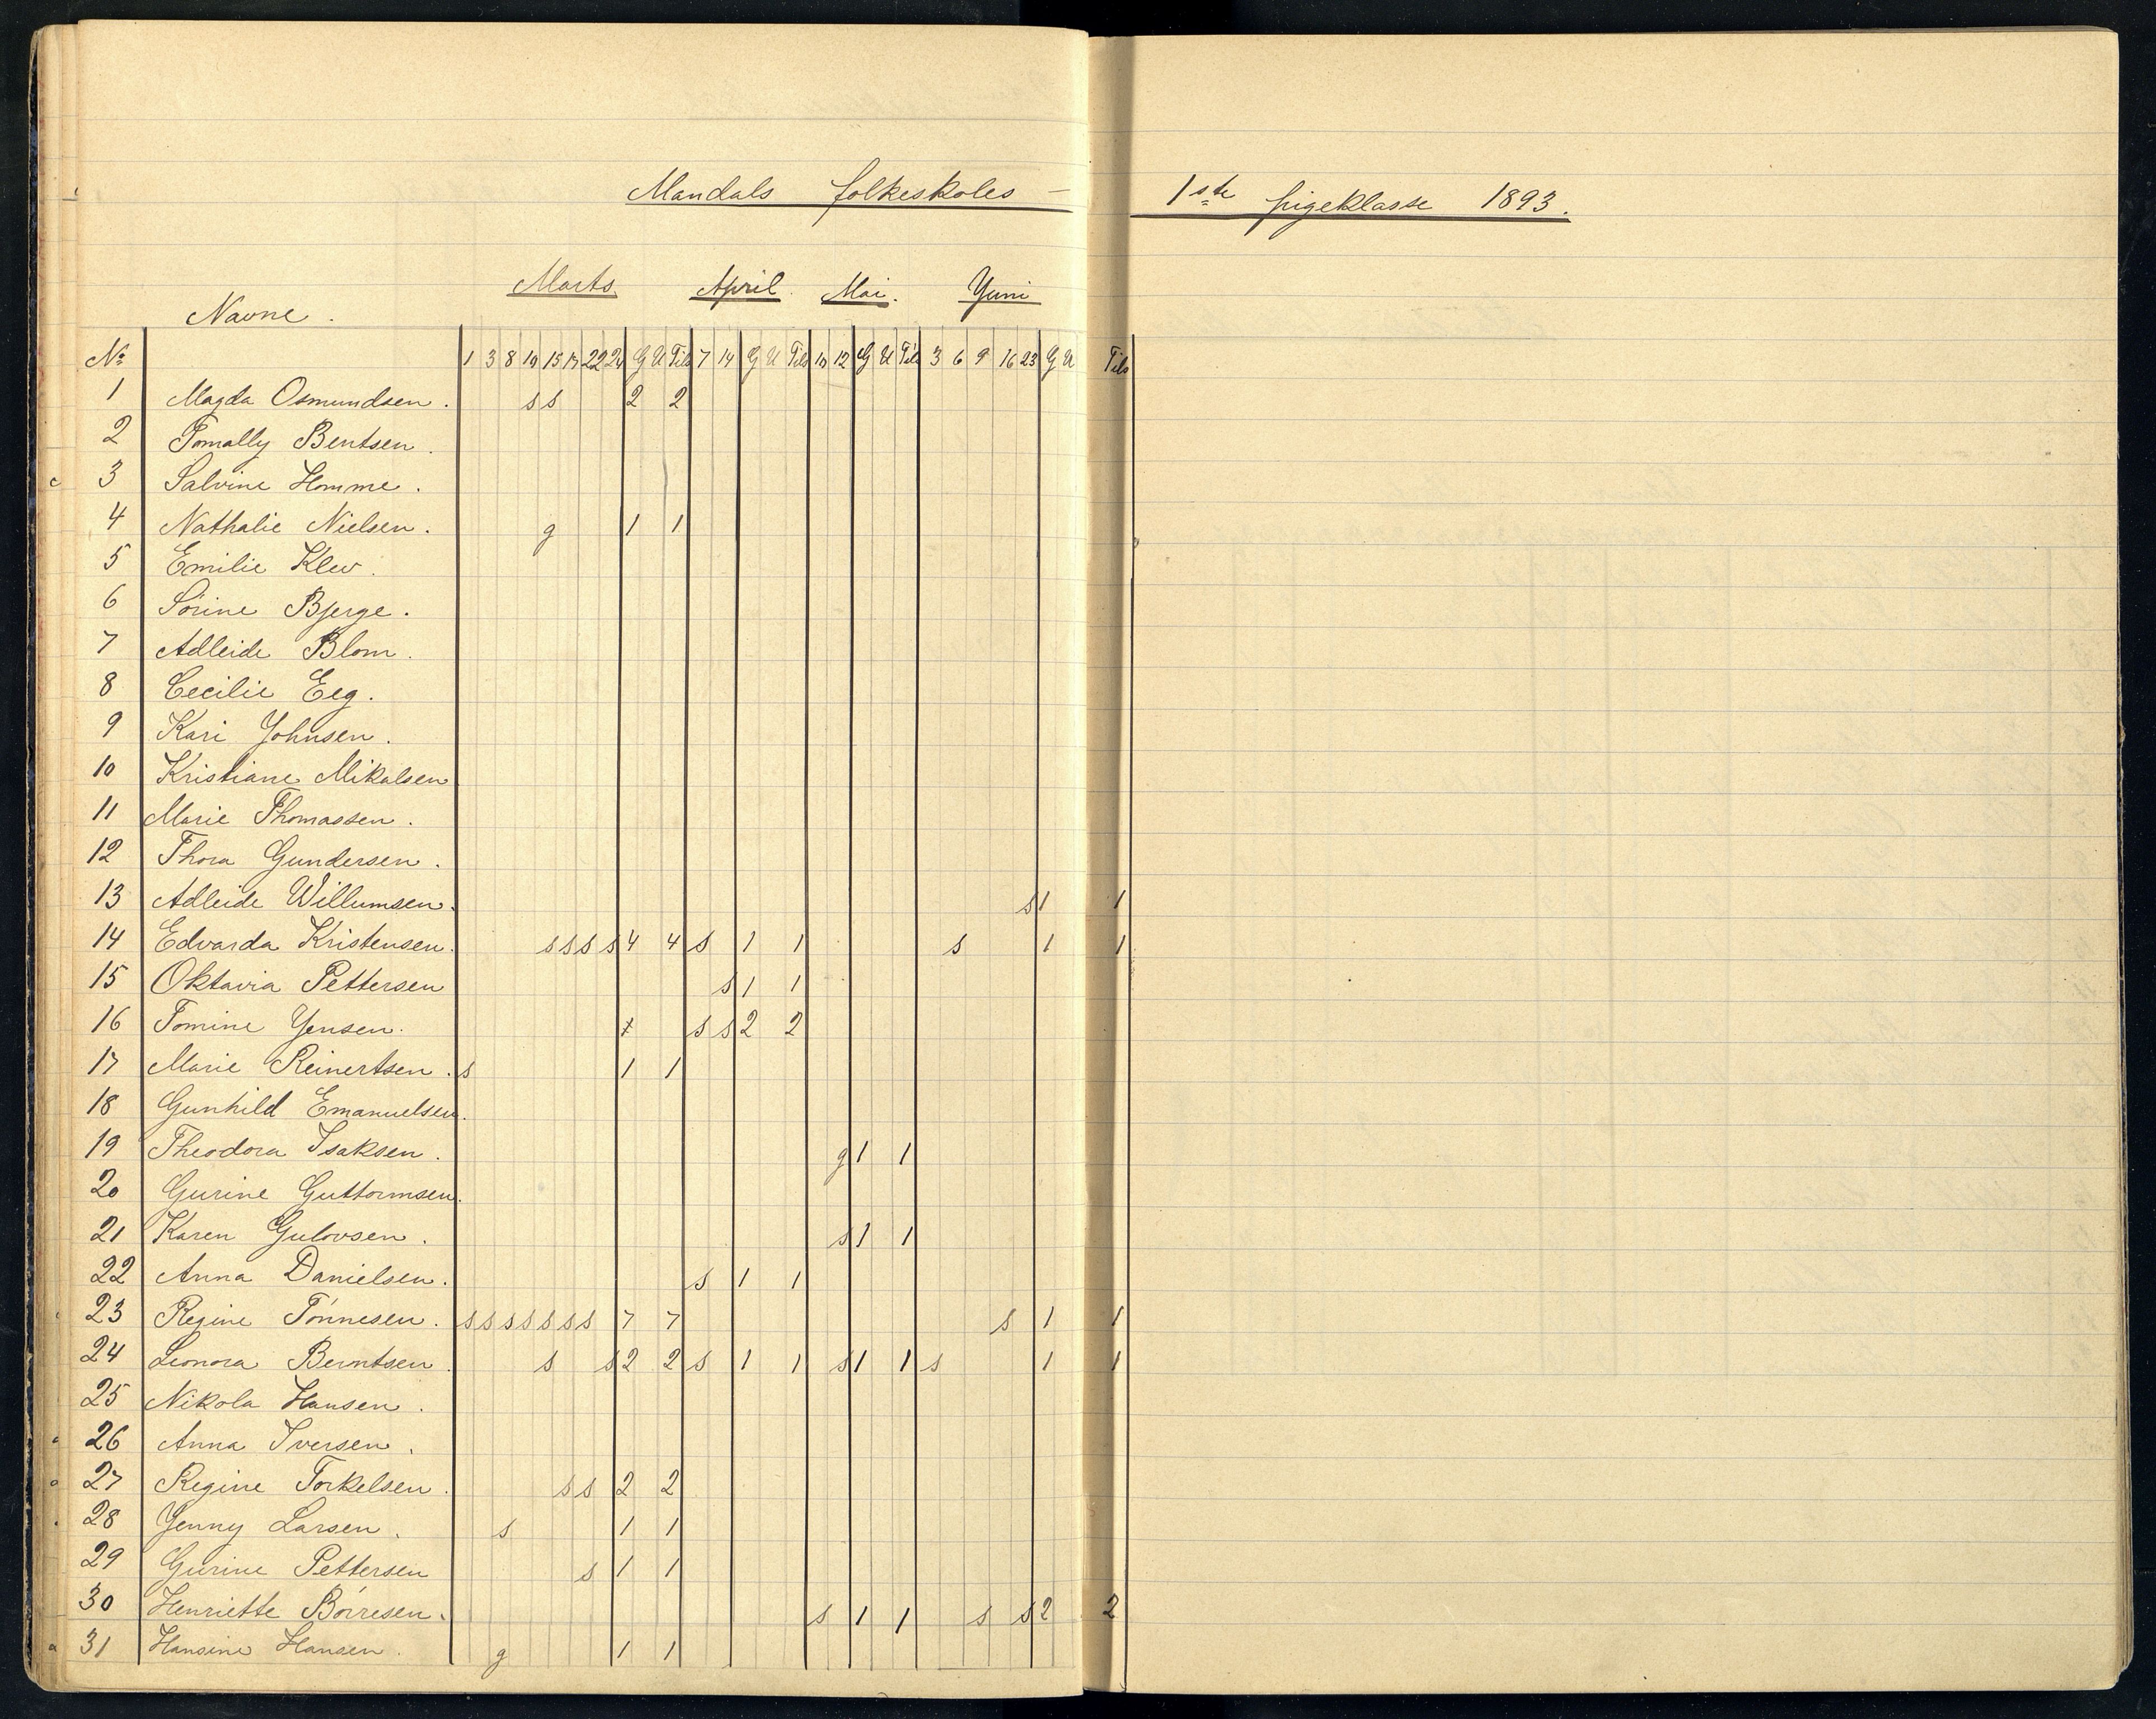 Mandals folkeskoles – 1ste pigeklasse 1893.
Marts April. Mai. Juni
Navne.
No 1 3 8 10 15 17 22 24 G U Tils 7 14 G U Tils 10 12 G U Tils 3 6 9 16 23 G U Tils
1 Magda Osmundsen. s s 2 2
2 Tomally Bentsen.
3 Salvine Homme.
4 Nathalie Nielsen. g 1 1
5 Emilie Klev.
6 Sörine Bjerge.
7 Adleide Blom.
8 Cecilie Eeg.
9 Kari Johnsen.
10 Kristiane Mikalsen
11 Marie Thomassen.
12 Thora Gundersen.
13 Adleide Willumsen. s 1 1
14 Edvarda Kristensen. s s s s 4 4 s 1 1 s 1 1
15 Oktavia Pettersen s 1 1
16 Tomine Jensen. s s 2 2
17 Marie Reinertsen. s 1 1
18 Gunhild Emanuelsen.
19 Theodora Isaksen. g 1 1
20 Gurine Guttormsen.
21 Karen Gulovsen. s 1 1
22 Anna Danielsen. s 1 1
23 Regine Tönnesen. s s s s s s s 7 7 s 1 1
24 Leonora Berntsen. s s 2 2 s 1 1 s 1 1 s 1 1
25 Nikola Hansen.
26 Anna Iversen.
27 Regine Torkelsen. s s 2 2
28 Jenny Larsen. s 1 1
29 Gurine Pettersen s 1 1
30 Henriette Börresen. s 1 1 s s 2 2
31 Hansine Hansen. g 1 1